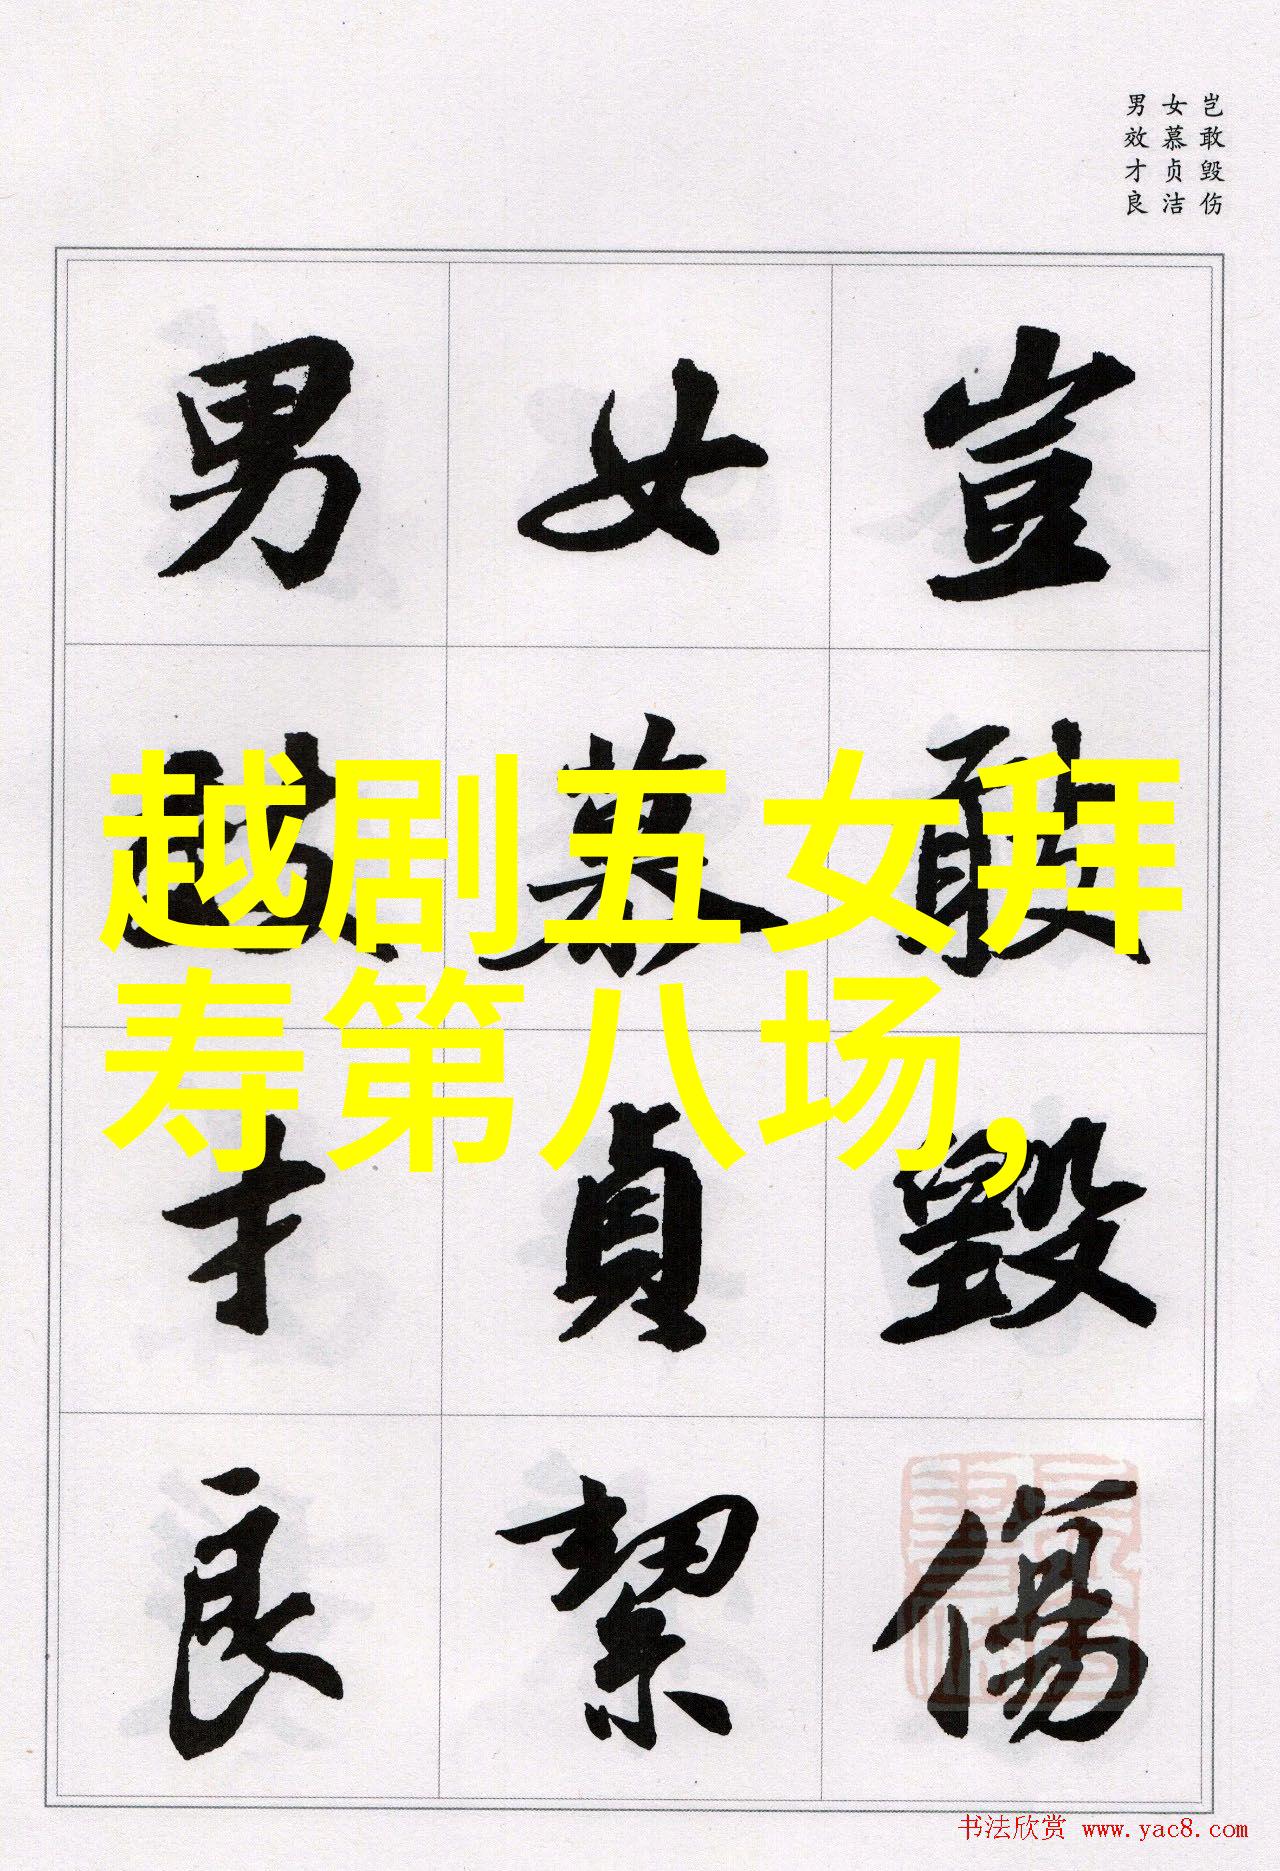 岂敢毁伤
女慕贞洁
男效才良
豈敢毀傷
女慕貞絜
男效才良
越剧五女拜
寿第八场,
书法欣赏 www.yac8.com